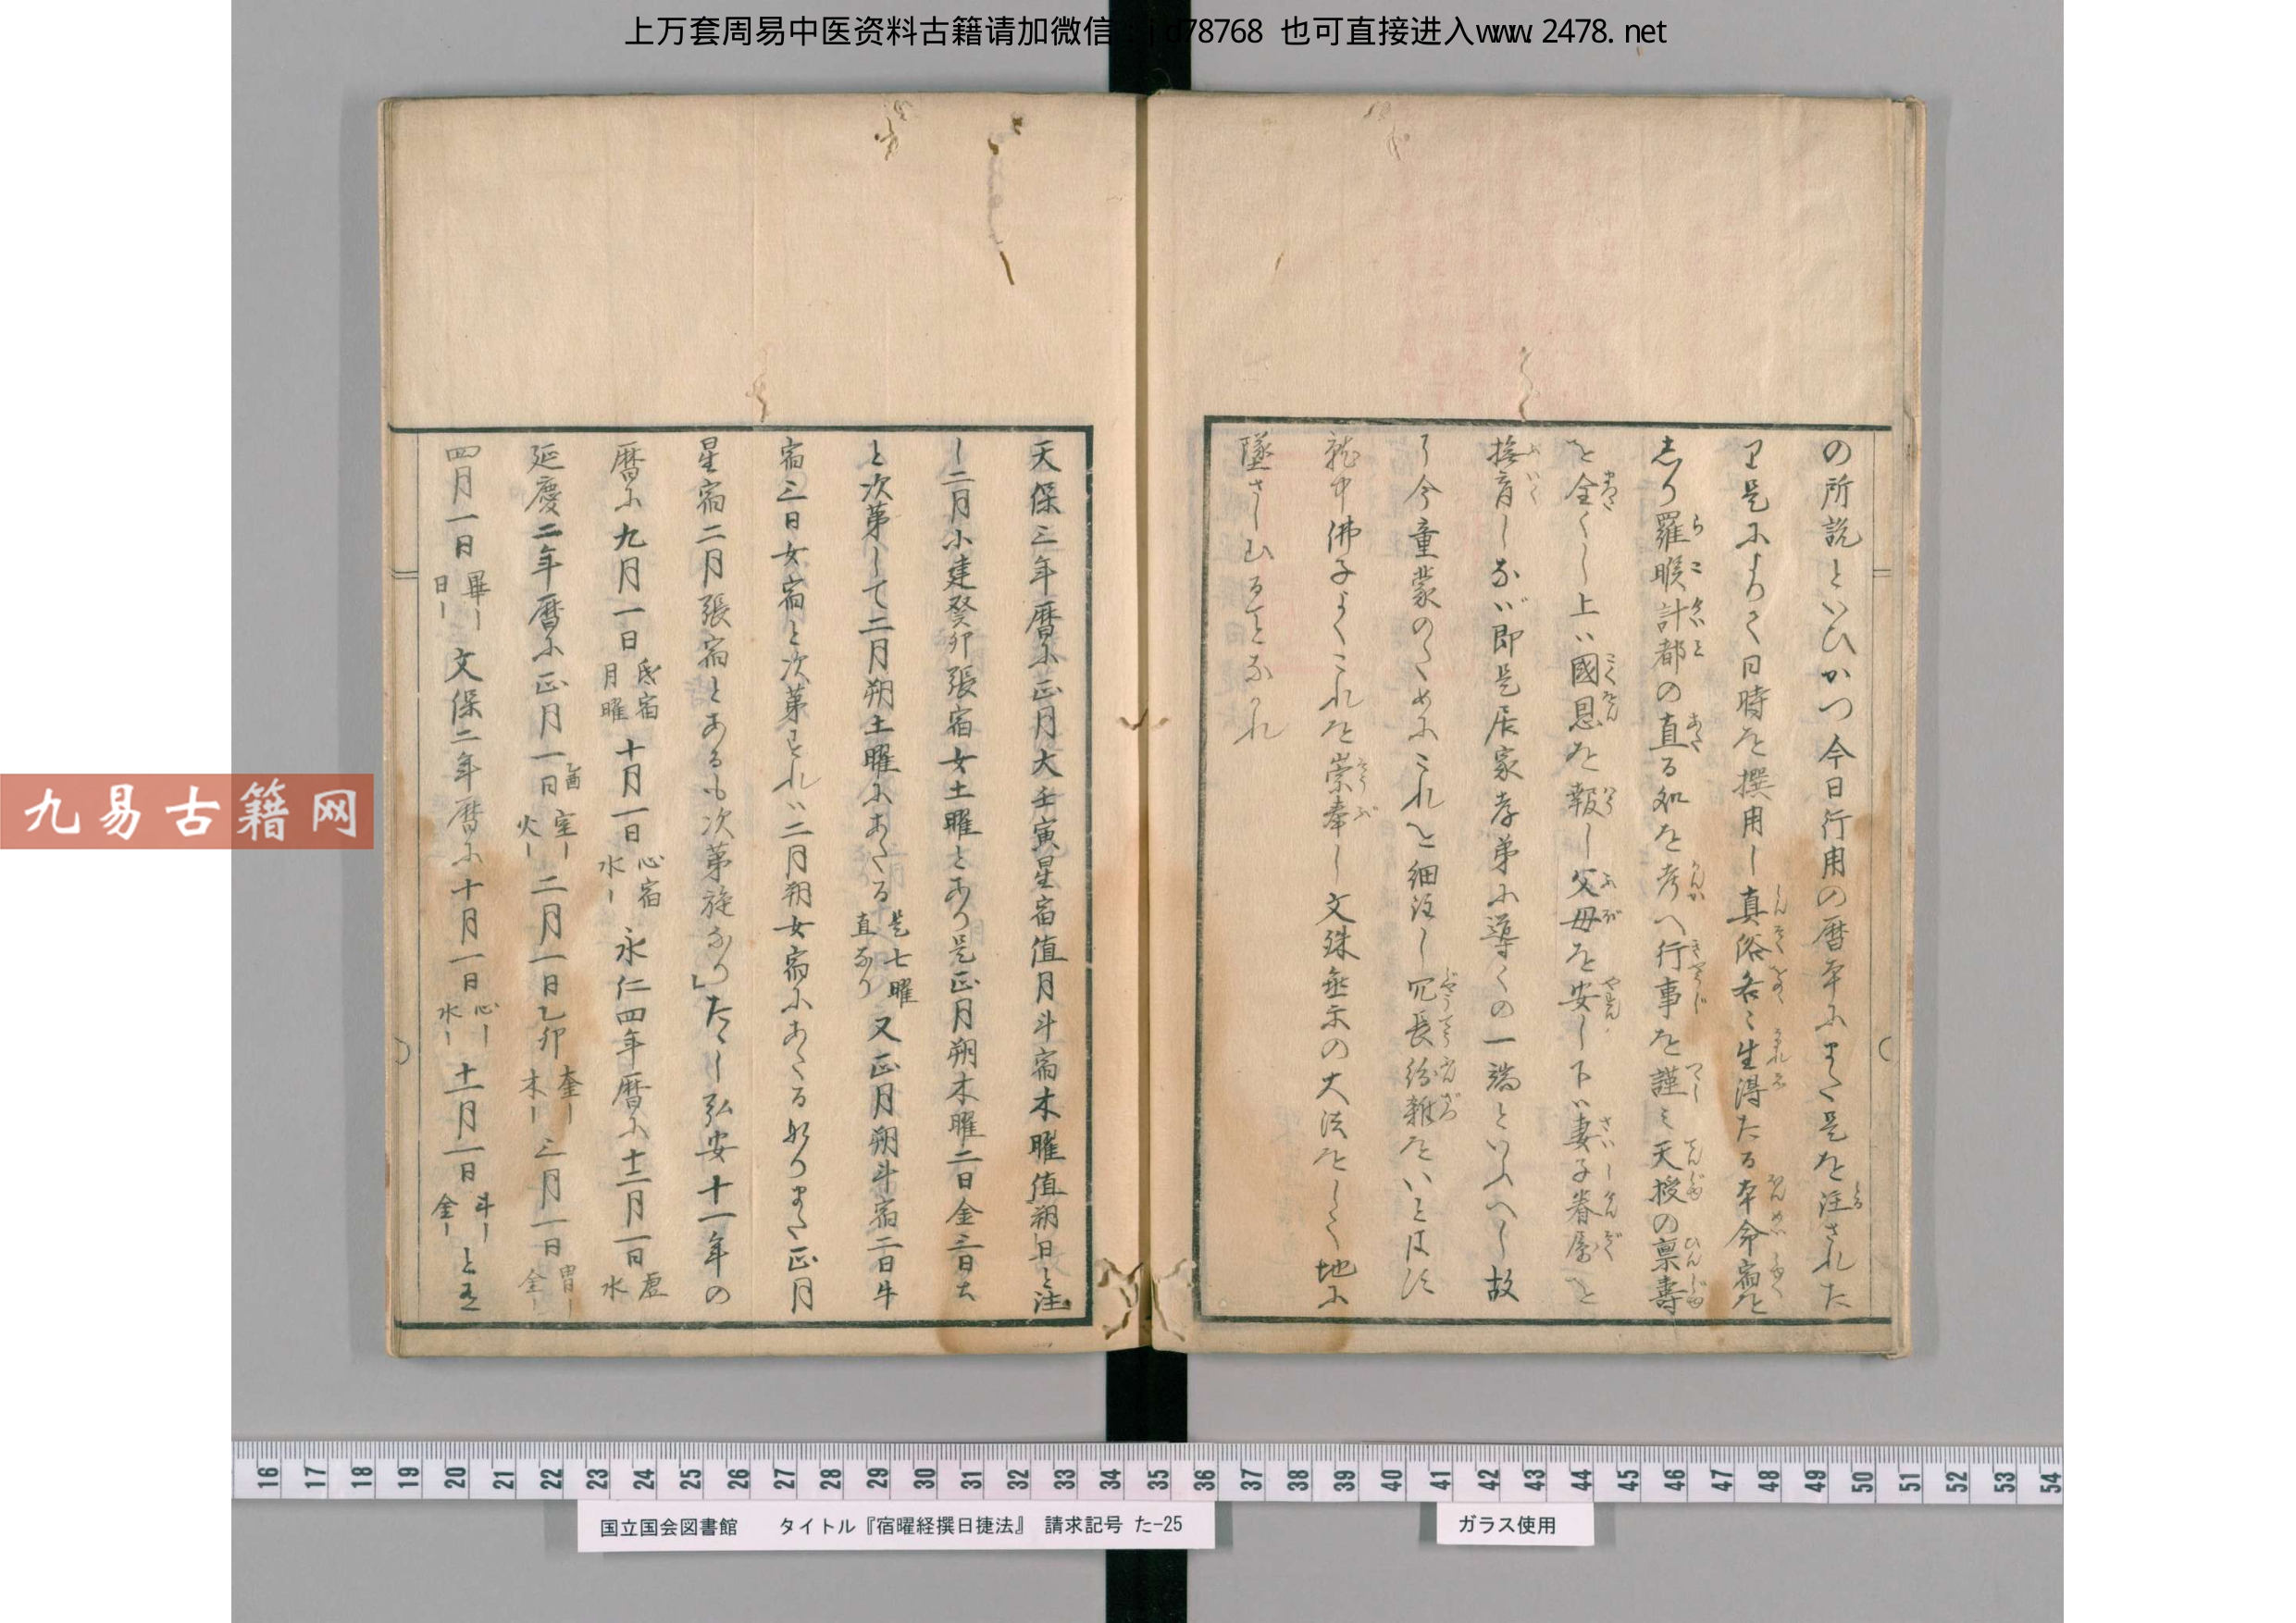 上万套周易中医资料古籍请加微信：jd78768 也可直接进入www.2478.net
の所説といひかつ今日行用の暦本にまた是を注された
り是によりて日時を撰用し真俗各々生得たる本命宿を
しり羅睺計都の直る処を考へ行事を謹ミ天授の禀壽
を全くし上ハ國恩を報し父母を安し下ハ妻子眷属を
撫育しなバ即是居家孝弟に導くの一端といふへし故
に今童蒙のためにこれを細注し冗長紛雑をいとはす
龍中佛子よくこれを崇奉し文殊垂示の大法をして地に
墜さしむることなかれ
天保三年暦に正月大壬寅星宿値月斗宿木曜値朔日と注
し二月小建癸卯張宿女土曜とあり是正月朔木曜二日金三日土
と次第して二月朔土曜にあたる是七曜直なり又正月朔斗宿二日牛
宿三日女宿と次第すれハ二月朔女宿にあたるなりまた正月
星宿二月張宿とあるも次第旋なり」たゝし弘安十一年の
暦に九月一日氐宿月曜十月一日心宿水ー永仁四年暦に十二月一日虚水
延慶二年暦に正月一日乙酉室ー火ー二月一日乙卯奎ー木ー三月一日胃ー金ー
四月一日畢ー日ー文保二年暦に十月一日心ー水ー十一月一日斗ー金ーと
九易古籍网
16 17 18 19 20 21 22 23 24 25 26 27 28 29 30 31 32 33 34 35 36 37 38 39 40 41 42 43 44 45 46 47 48 49 50 51 52 53 54
国立国会図書館 タイトル『宿曜経撰日捷法』 請求記号 た-25
ガラス使用